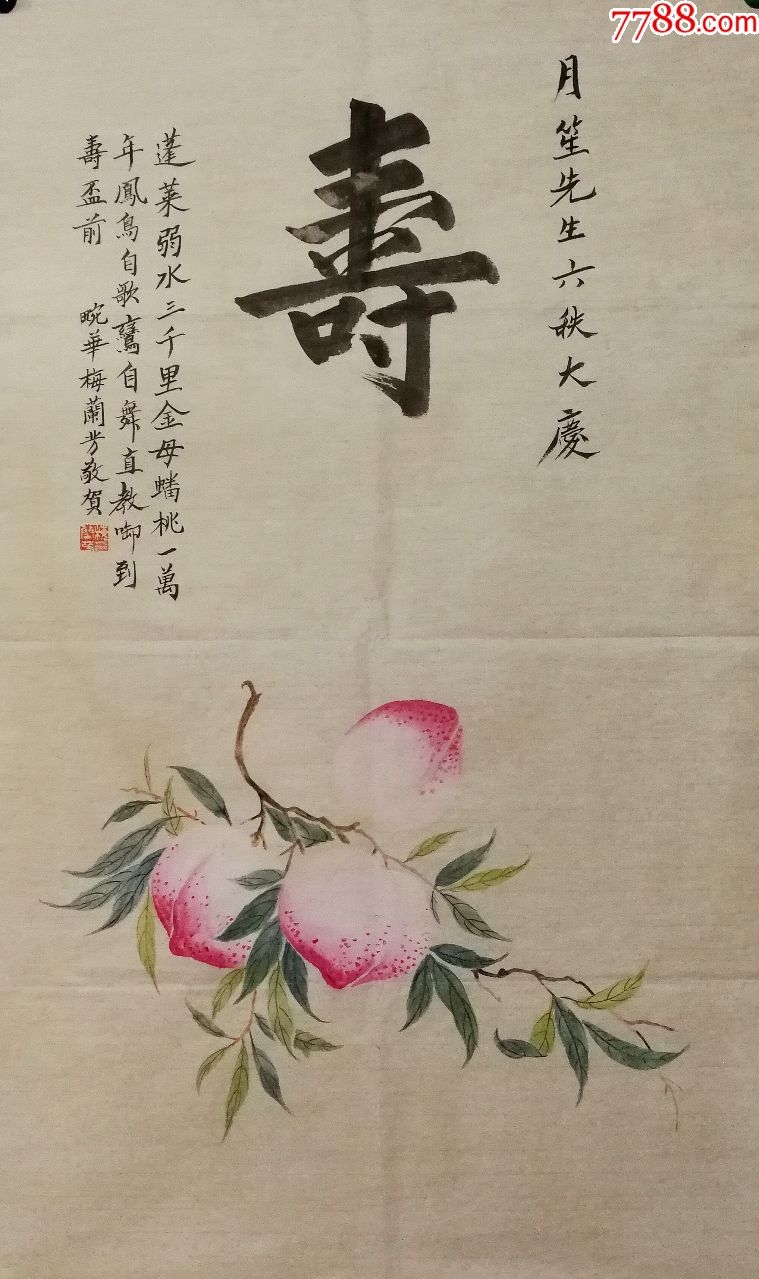 7788.com
月笙先生六秩大慶
壽
蓬萊弱水三千里金母蟠桃一萬
年鳳鳥自歌鸞自舞直教啣到
壽盃前 畹華梅蘭芳敬賀